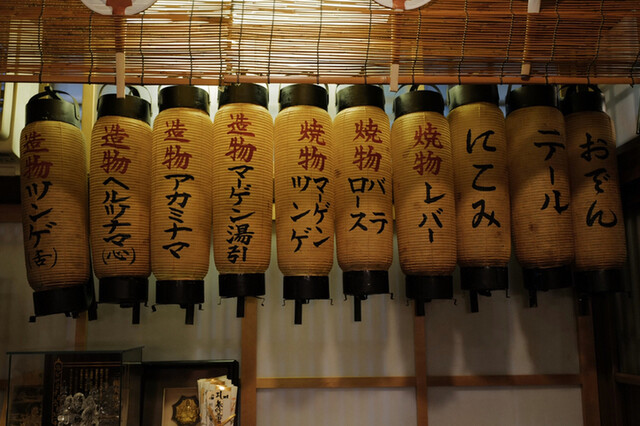 造物
ツンゲ
(舌)
造物
ヘルツナマ
(心)
造物
アカミナマ
造物
マーゲン湯引
焼物
マーゲン
ツンゲ
焼物
バテ
ロース
焼物
レバー
にこみ
テール
おでん